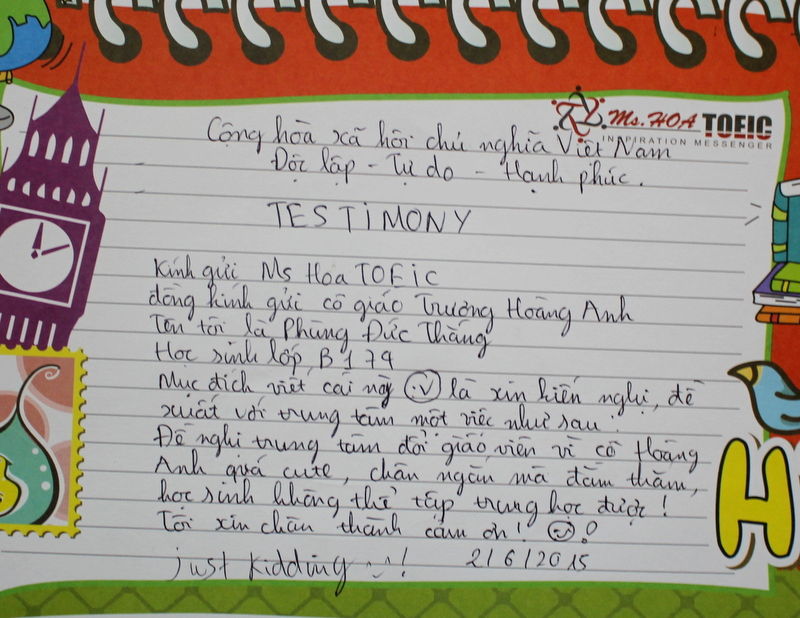 Ms. HOA TOEIC
INSPIRATION MESSENGER
Cộng hòa xã hội chủ nghĩa Việt Nam
Độc lập - Tự do - Hạnh phúc.
TESTIMONY
Kính gửi Ms Hoa TOEiC
đồng kính gửi cô giáo Trương Hoàng Anh
Tên tôi là Phùng Đức Thắng
Học sinh lớp B179
Mục đích viết cái này là xin kiến nghị, đề
xuất với trung tâm một việc như sau:
Đề nghị trung tâm đổi giáo viên vì cô Hoàng
Anh quá cute, chân ngắn mà đằm thắm,
học sinh không thể tập trung học được!
Tôi xin chân thành cảm ơn!
just kidding !
2/6/2015
H